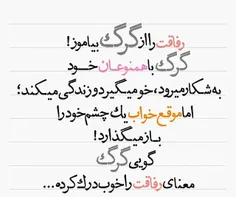 رفاقت را از گرگ بیاموز!
گرگ با همنوعان خود
به شکار میرود، خو میگیرد و زندگی میکند؛
اما موقع خواب یک چشم خود را
باز میگذارد!
گویی گرگ
معنای رفاقت را خوب درک کرده...